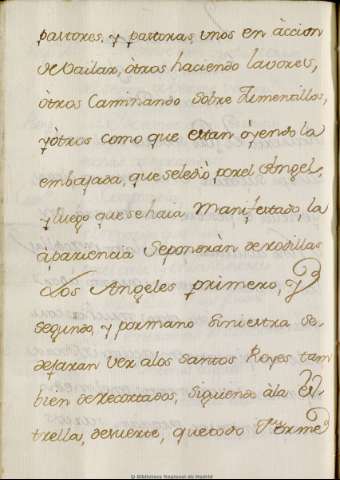 pastores, y pastoras, unos en àccion
de Vailar, òtros haciendo lavores,
òtros Caminando sobre Jumentillos,
y òtros como que estan óyendo la
embajada, que se le diò por el Angel,
y luego que se haia Manifestado, la
àpariencia Se pondràn de rodillas
Los Angeles primero, y
segundo, y por mano Siniestra se
dejaran ver a los Santos Reyes tam
bien de Recortados, Siguiendo à la Es
trella, de suerte, que todo Forme
© Biblioteca Nacional de Madrid